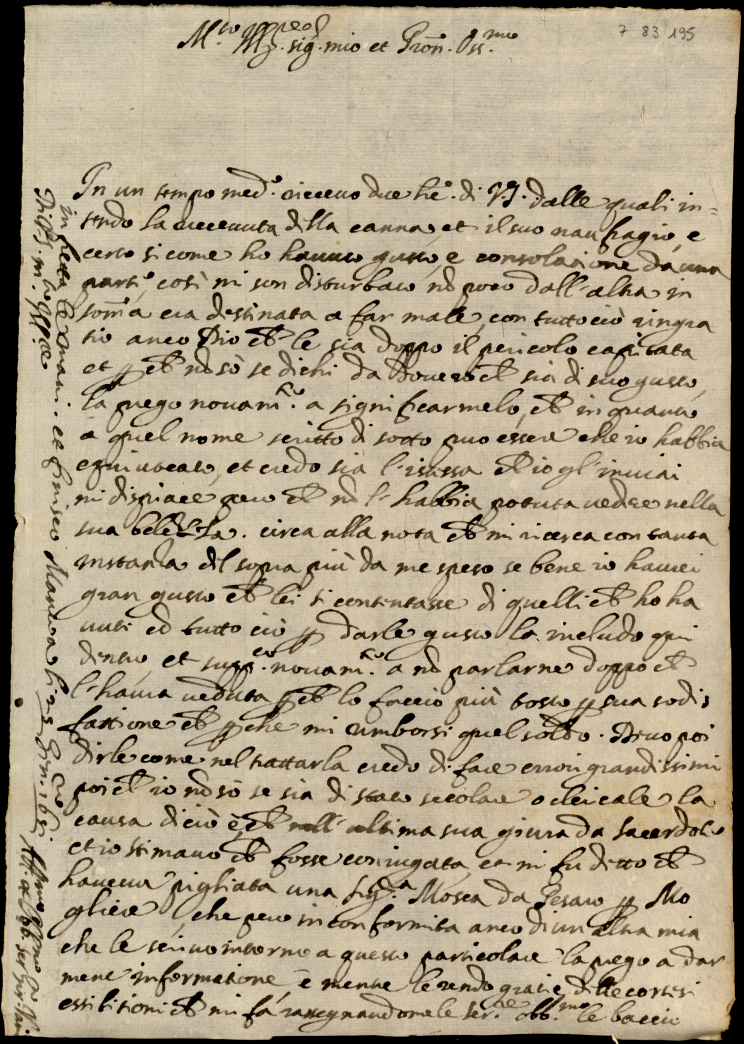 7 83 195
sig. mio et Pron. Oss.mo
In un tempo med.o ricevo due lre. di VS. dalle quali in=
tendo la ricevuta della canna, et il suo naufragio, e
certo si come ho havuto gusto e consolatione da una
parte, così mi son disturbato nō poco dall'altra in
som̄a era destinata a far male, con tutto ciò ringra
tio anco Dio ch̄ le sia doppo il pericolo capitata
et p ch̄ nō sò se dichi da dovero ch̄ sia di suo gusto,
la prego novam.te a significarmelo, ch̄ in quanto
a quel nome scritto di sotto puo essere che io habbia
equivocato, et credo sia l'istessa ch̄ io gl'inviai
mi dispiace pero ch̄ nō l'habbia potuta vedere nella
sua bellezza. circa alla nota ch̄ mi ricerca con tanta
instanza del sopra più da me speso se bene io haverei
gran gusto ch̄ lei si contentasse di quelli ch̄ ho ha
vuti cō tutto ciò p darle gusto la includo qui
dentro, et supp.co novam.te a nō parlarne doppo ch̄
l'havra veduta p ch̄ lo faccio più tosto p sua sodis
fattione ch̄ p che mi rimborsi quel soldo. Devo poi
dirle come nel trattarla credo di fare errori grandissimi
poi ch̄ io nō sò se sia di stato secolare o clericale la
causa di ciò è ch̄ nell'ultima sua giura da sacerdote
et io stimavo ch̄ fosse coniugata, et mi fu detto ch̄
haveva pigliata una Sig.ra Mosca da Pesaro p Mo
gliere che pero in conformita anco di un altra mia
che le scrivo intorno a questo particolare la prego a dar
mene informatione, e mentre le rendo gratie delle cortesi
essibitioni ch̄ mi fà rassegnandomele ser.re obb.mo le bacio
in fretta le mani. et finisco Mantova li 25
Di VS. m.